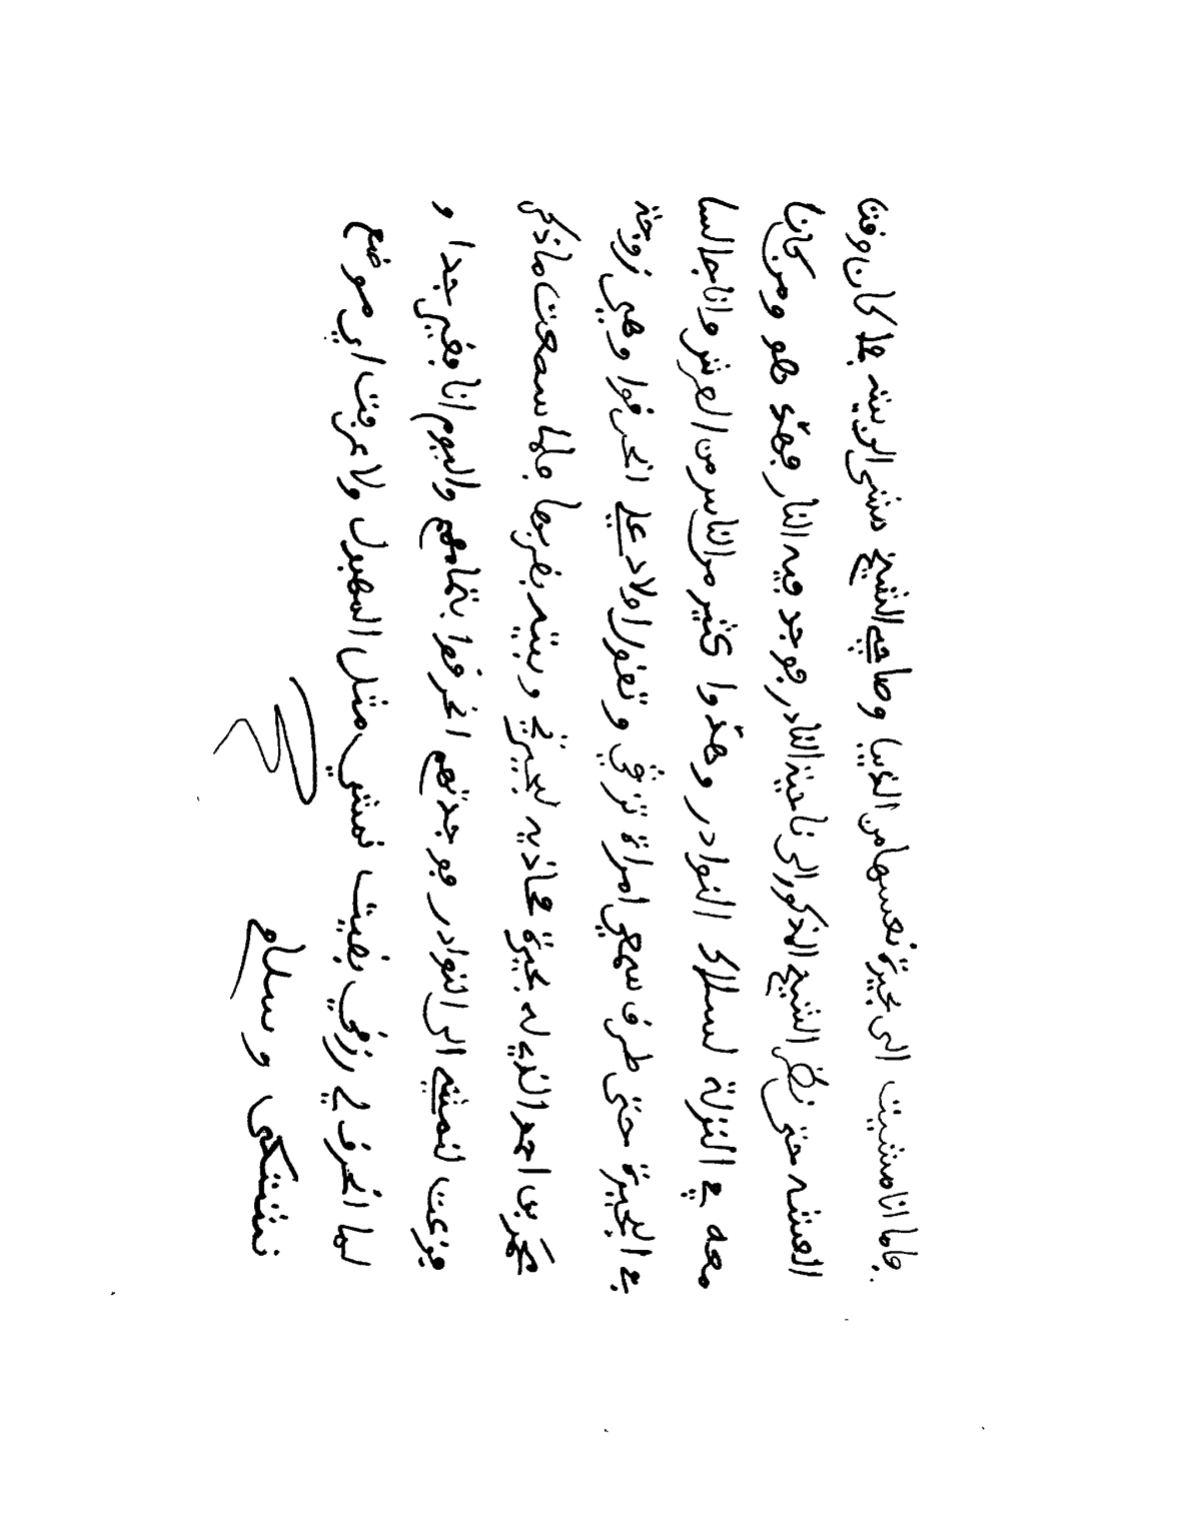 فلما انا مشيت الى بحيرة نعسها من الدنيا وصاحب الشيخ مشى الريشه فلا كان وقت
العشه حتى نظر الشيخ المذكور الى ناحية النادر فوجد فيه النار فهدّ هو ومن كانا
معه في النزلة لسلاك النوادر وهدّوا كثير من الناس من العرش وانا جالسا
في البحيرة حتى طرف سمعي امراة تزقي وتقول اولاد علي انحرقوا وهي زوجة
محمد بن احمد الذي له بحيرة محاذيه لبحيرتي وبيته بقربها فلما سمعت ما ذكر
فزعت لنمشي الى النوادر فوجدتهم انحرقوا بتمامهم واليوم انا فقير جدا و
لما انحرف لي رزقي بقيت نمشي مثل المهبول ولا عرفت اي موضع
نشتكى وسلام